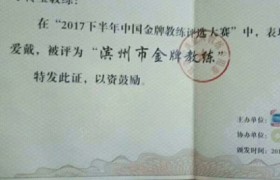 教练：
在“2017下半年中国金牌教练评选大赛”中，表
爱戴，被评为“滨州市金牌教练”
特发此证，以资鼓励。
主办单位
协办单位
颁发时间：201